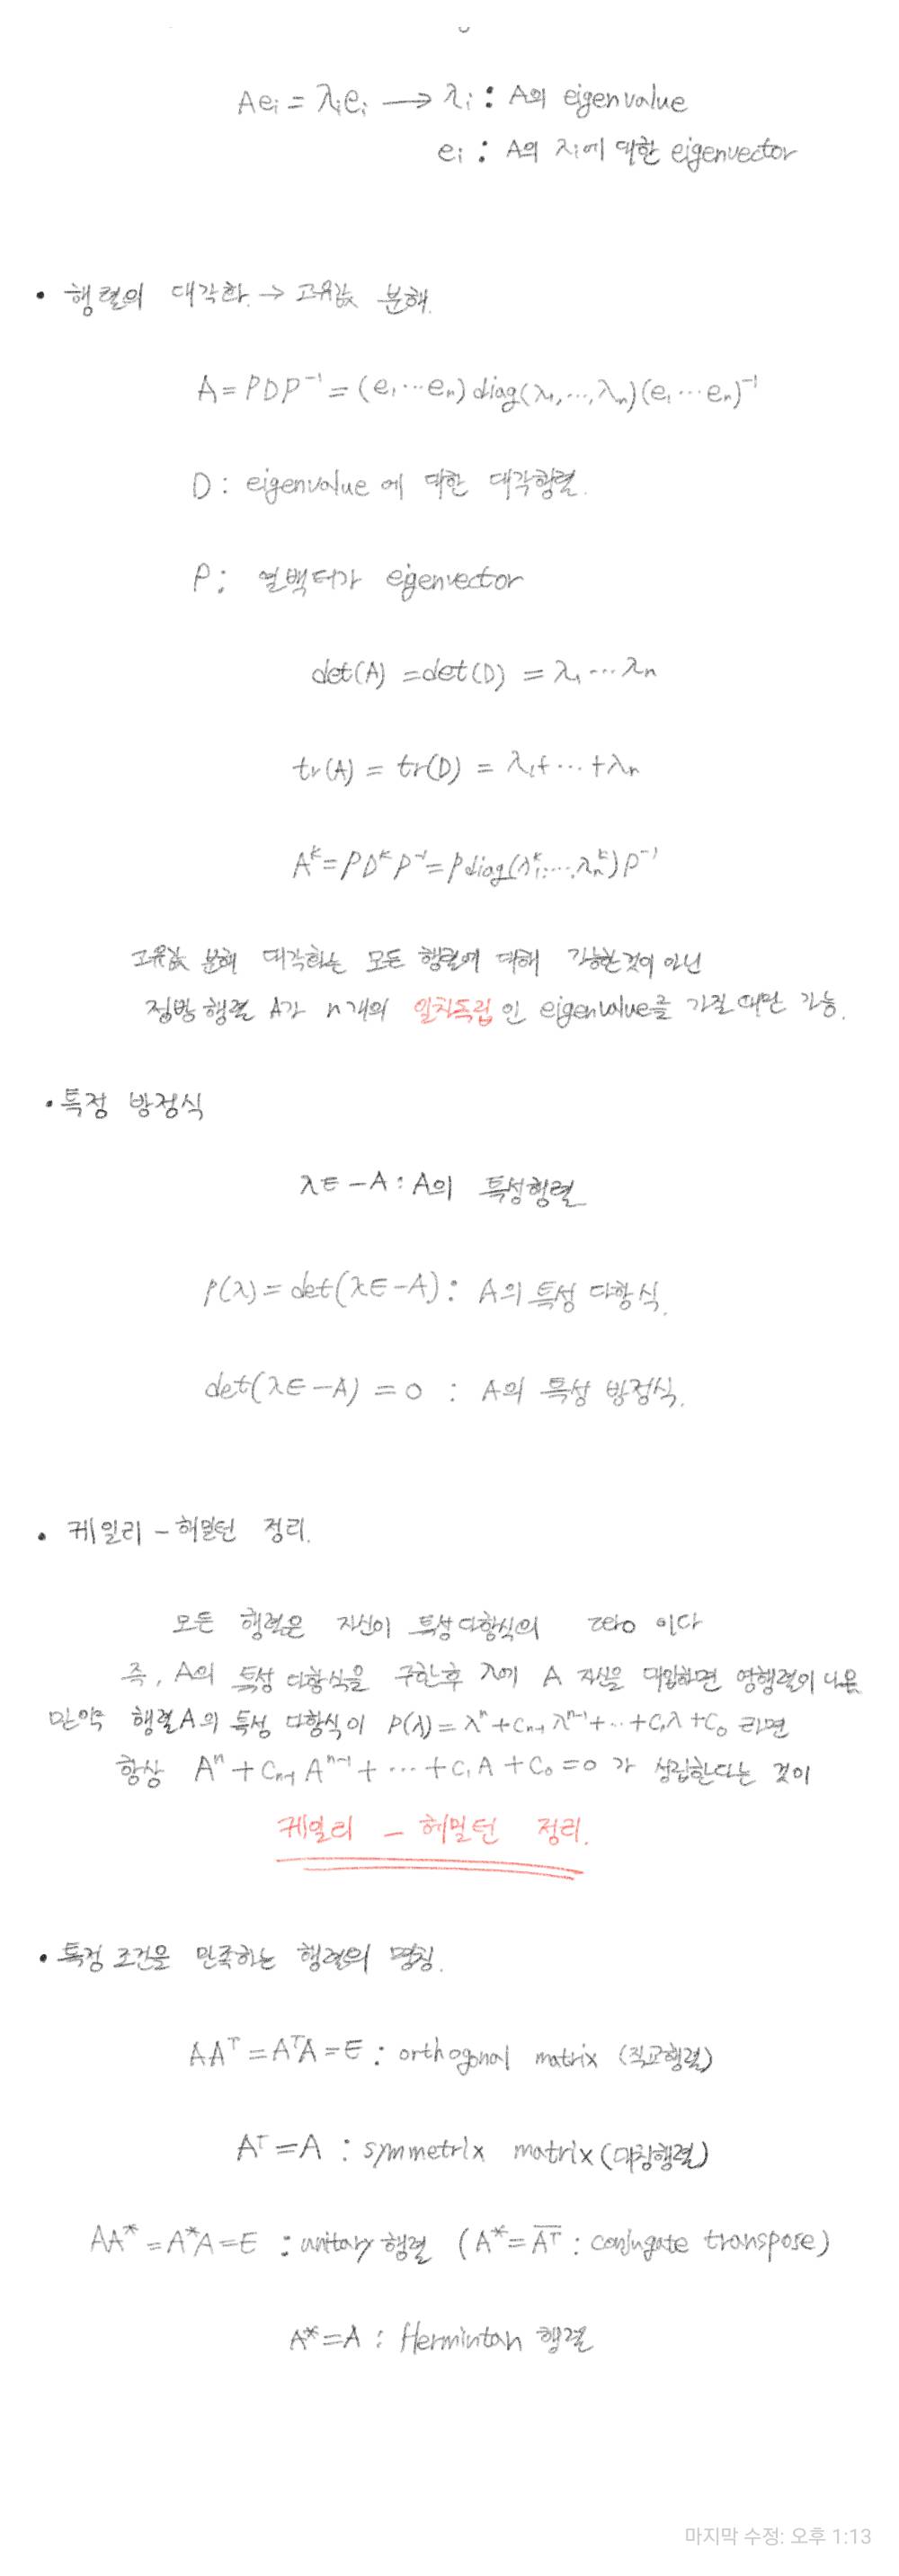 Aeᵢ = λᵢeᵢ → λᵢ : A의 eigenvalue
eᵢ : A의 λᵢ에 대한 eigenvector
• 행렬의 대각화. → 고유값 분해.
A = PDP⁻¹ = (e₁ ⋯ eₙ) diag(λ₁, ⋯, λₙ)(e₁ ⋯ eₙ)⁻¹
D : eigenvalue에 대한 대각행렬.
P ; 열백터가 eigenvector
det(A) = det(D) = λ₁ ⋯ λₙ
tr(A) = tr(D) = λ₁ + ⋯ + λₙ
Aᵏ = PDᵏP⁻¹ = P diag(λ₁ᵏ, ⋯, λₙᵏ)P⁻¹
고유값 분해 대각화는 모든 행렬에 대해 가능한것이 아닌
정방행렬 A가 n개의 일차독립인 eigenvalue를 가질 때만 가능.
• 특정 방정식
λE − A : A의 특성행렬
P(λ) = det(λE − A) : A의 특성 다항식.
det(λE − A) = 0 : A의 특성 방정식.
• 케일리 − 해밀턴 정리.
모든 행렬은 자신이 특성다항식의 zero 이다
즉, A의 특성 다항식을 구한후 λ에 A 자신을 대입하면 영행렬이 나옴
만약 행렬A의 특성 다항식이 P(λ) = λⁿ + cₙ₋₁λⁿ⁻¹ + ⋯ + c₁λ + c₀ 라면
항상 Aⁿ + cₙ₋₁Aⁿ⁻¹ + ⋯ + c₁A + c₀ = 0 가 성립한다는 것이
케일리 − 헤밀턴 정리.
• 특정 조건을 만족하는 행렬의 명칭.
AAᵀ = AᵀA = E : orthogonal matrix (직교행렬)
Aᵀ = A : symmetrix matrix (대칭행렬)
AA* = A*A = E : unitary 행렬 (A* = A̅ᵀ̅ : conjugate transpose)
A* = A : Hermintan 행렬
마지막 수정: 오후 1:13